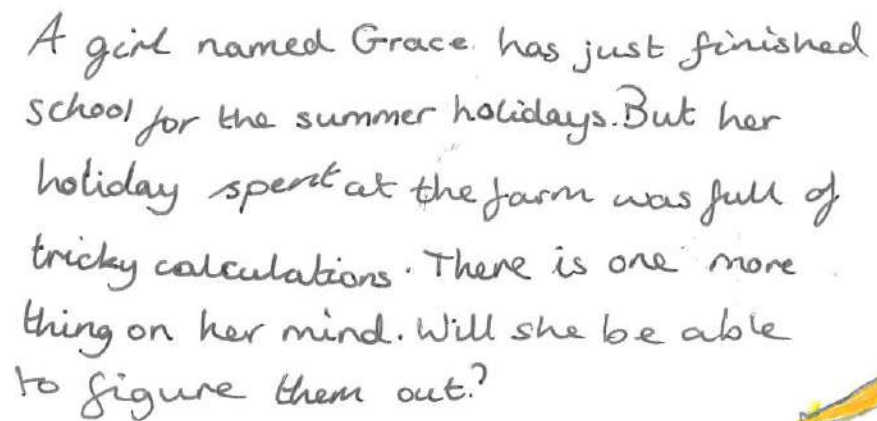 A girl named Grace has just finished
school for the summer holidays. But her
holiday spent at the farm was full of
tricky calculations. There is one more
thing on her mind. Will she be able
to figure them out?